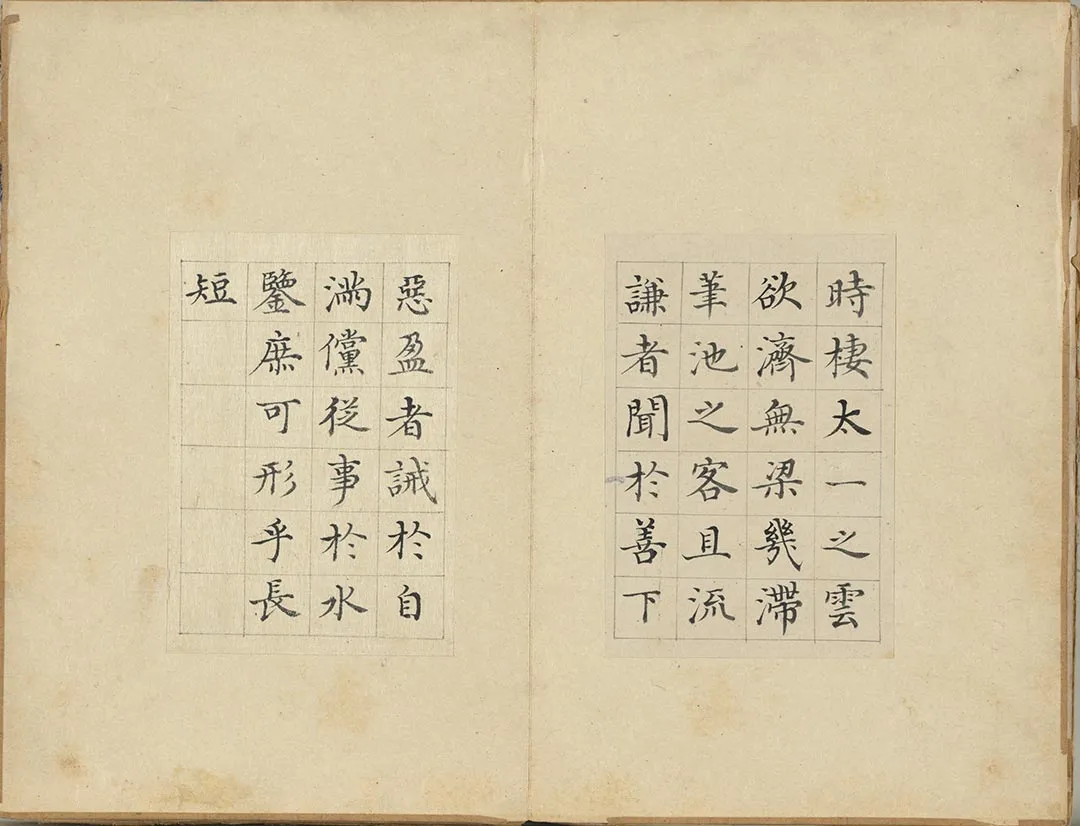 時棲太一之雲
欲濟無梁幾滯
筆池之客且流
謙者聞於善下
惡盈者誡於自
滿儻從事於水
鑒庶可形乎長
短